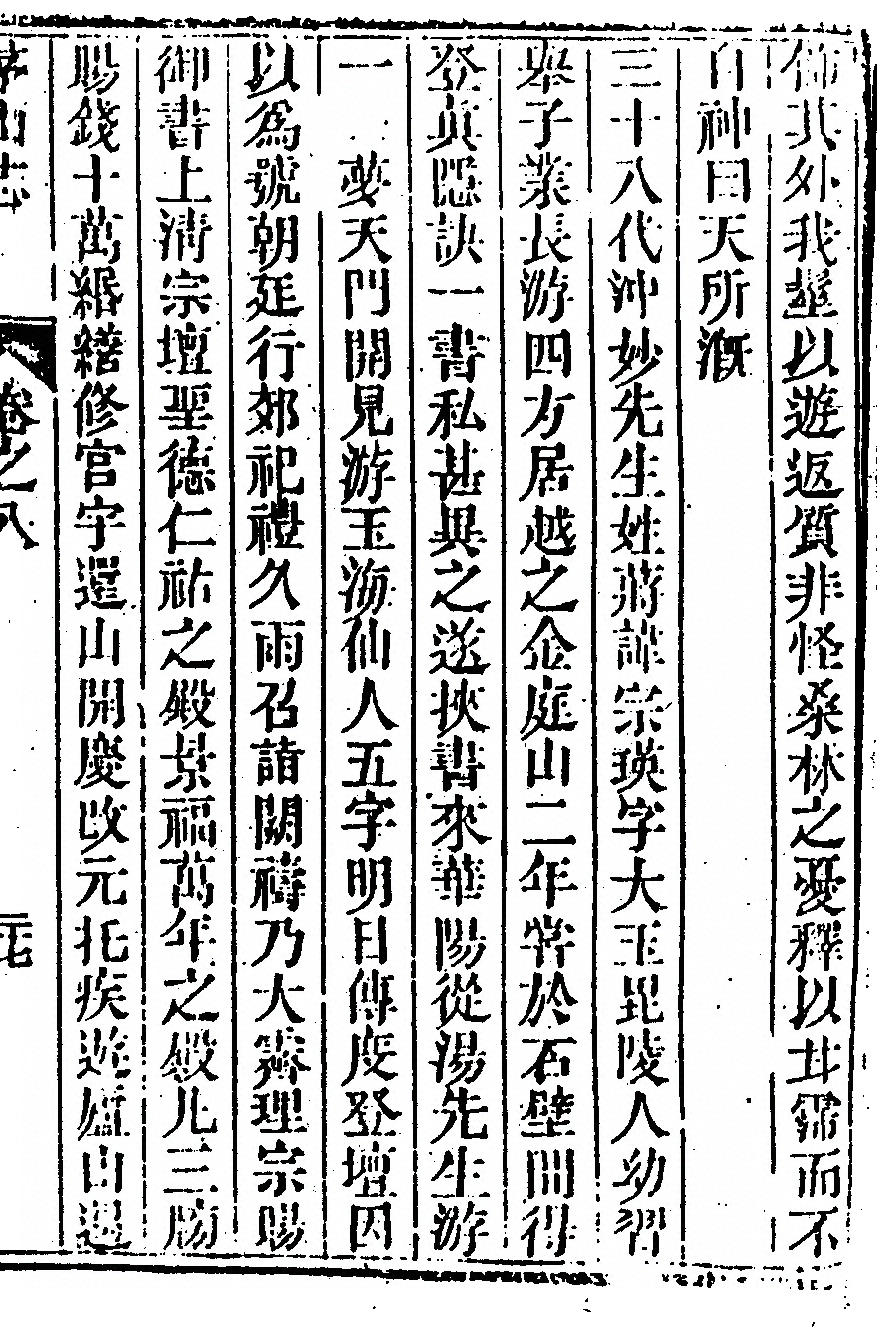 飾其外我躄以遊返質非怪桑林之憂釋以甘霈而不
自神曰天所漑
三十八代沖妙先生姓蔣諱宗瑛字大玉毘陵人幼習
舉子業長游四方居越之金庭山二年嘗於石壁間得
登眞隱訣一書私甚異之遂挾書來華陽從湯先生游
一　夢天門開見游玉海仙人五字明日傳度登壇因
以爲號朝廷行郊祀禮久雨召詣闕禱乃大霽理宗賜
御書上清宗壇聖德仁祐之殿景福萬年之殿凡三賜
賜錢十萬緡繕修宮宇還山開慶改元托疾遊廬山過
茅山志
卷之八